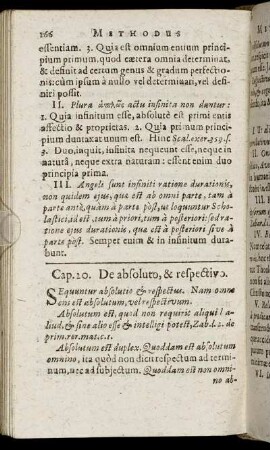 166 METHODUS
essentiam. 3. Quia est omnium entium princi-
pium primum, quod cætera omnia determinat,
& definit ad certum genus & gradum perfectio-
nis: cum ipsum à nullo vel determinari, vel de-
finiri possit.
II. Plura ἁπλῶς actu infinita non dantur:
1. Quia infinitum esse, absolutè est primi entis
affectio & proprietas. 2. Quia primum princi-
pium duntaxat unum est. Hinc Scal. exer. 359. s.
3. Duo, inquit, infinita nequeunt esse, neque in na-
turâ, neque extra naturam: essent enim duo
principia prima.
III. Angeli sunt infiniti ratione durationis,
non quidem ejus, quæ est ab omni parte, tam à
parte ante, quàm à parte pòst, ut loquuntur Scho-
lastici, id est, tum à priori, tum à posteriori: sed ra-
tione ejus durationis, quæ est à posteriori sive à
parte pòst. Semper enim & in infinitum dura-
bunt.
Cap. 20. De absoluto, & respectivo.
SEquuntur absolutio & respectus. Nam omne
ens est absolutum, vel respectivum.
Absolutum est, quod non requirit aliqui l a-
liud, & sine alio esse & intelligi potest, Zab. l. 2. de
prim. rer. mat. c. 1.
Absolutum est duplex. Quoddam est absolutum
omnino, ita quòd non dicit respectum ad termi-
num, nec ad subjectum. Quoddam est non omni-
no ab-